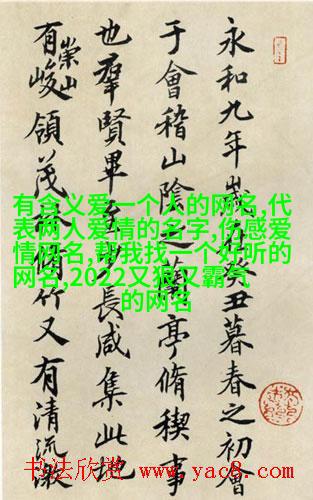 永和九年歲在癸丑暮春之初會
于會稽山陰之蘭亭脩稧事
也羣賢畢至少長咸集此地
有崇山峻領茂林脩竹又有清流激
有含义爱一个人的网名,代
表两人爱情的名字,伤感爱
情网名,帮我找一个好听的
网名,2022又狠又霸气
的网名
书法欣赏 www.yac8.com